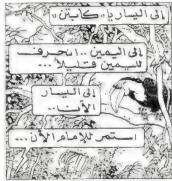 إلى اليسار يا "كابتن"!!
إلى اليمين .. انحرف
لليمين قليلاً ...
إلى اليسار
الآن ..
استمر للإمام الآن ...